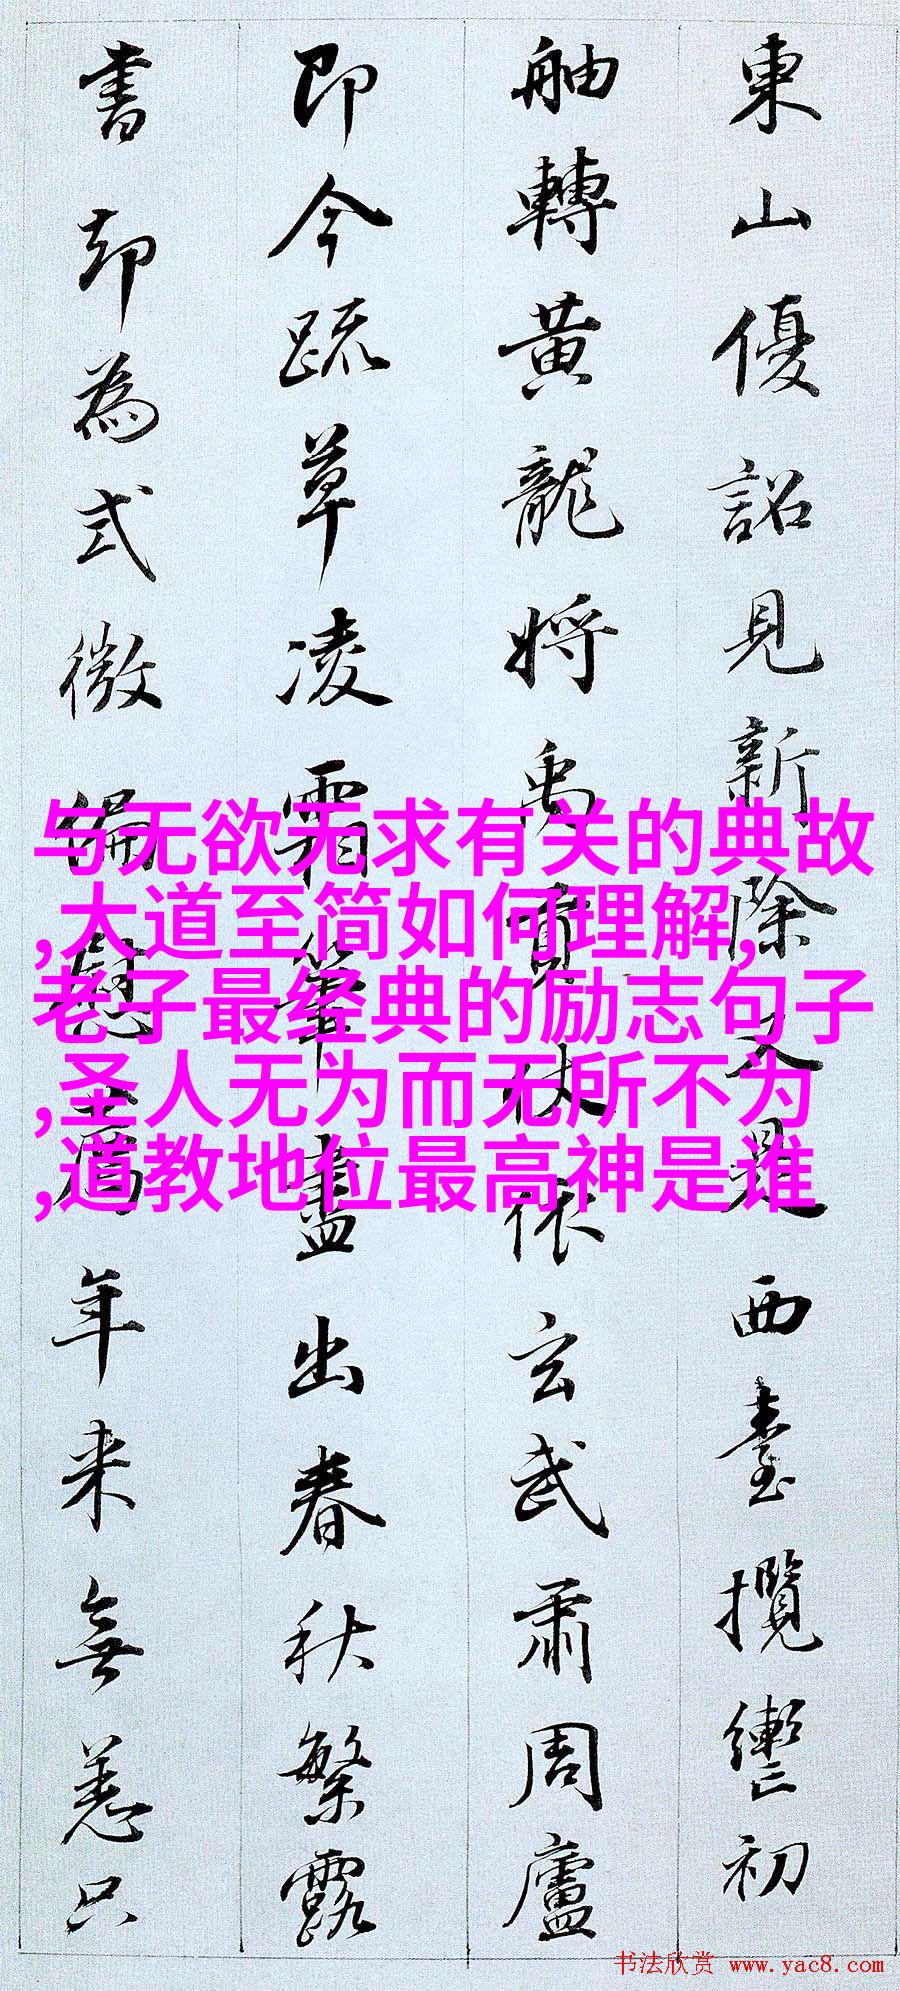 東山優詔見新除又是西臺攬轡初
舳轉黃龍將禹貢仗依玄武肅周廬
即今疏草凌霜筆盡出春秋繁露
書却為式微偏慰薦年来無恙只
与无欲无求有关的典故
,大道至简如何理解,
老子最经典的励志句子
,圣人无为而无所不为
,道教地位最高神是谁
书法欣赏 www.yac8.com